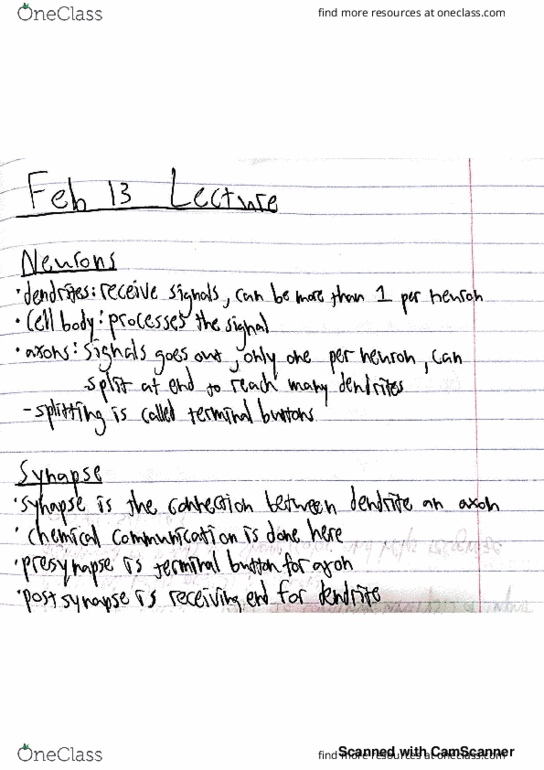 OneClass
find more resources at oneclass.com
Feb 13 Lecture
Neurons
• dendrites: receive signals, can be more than 1 per neuron
• cell body: processes the signal
• axons: signals goes out, only one per neuron, can
split at end to reach many dendrites
- splitting is called terminal buttons
Synapse
• synapse is the connection between dendrite an axon
• chemical communication is done here
• presynapse is terminal button for axon
• post synapse is receiving end for dendrite
OneClass
find more resources at oneclass.com
Scanned with CamScanner